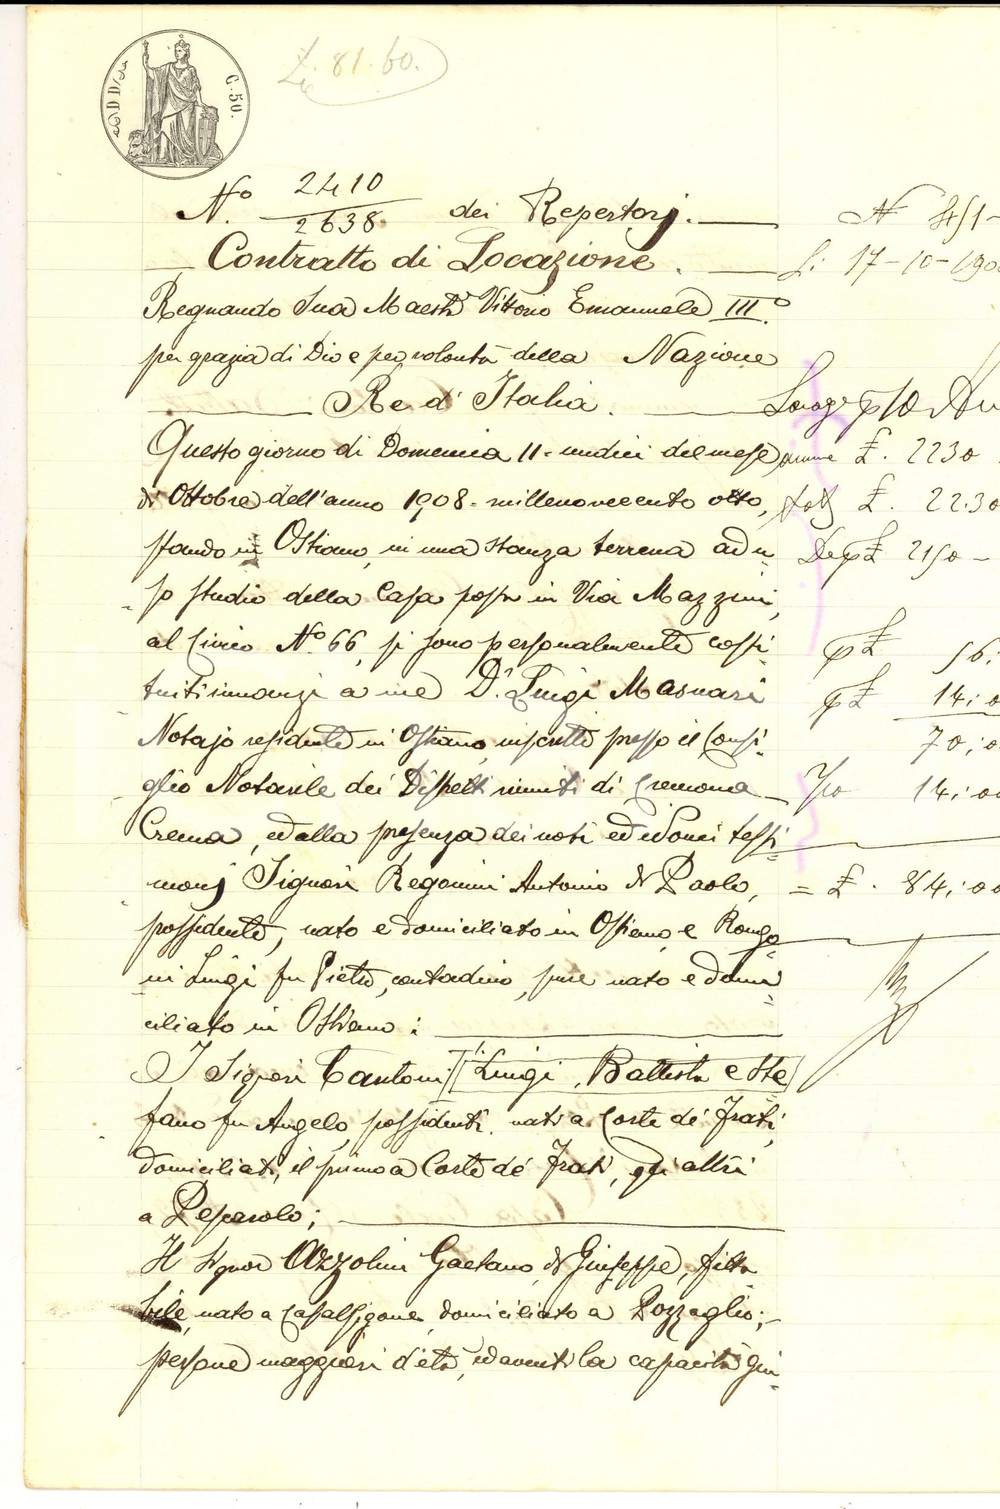 C. 50.
L. 81.60.
N.° 2410
2638 dei Repertorj.
N 451
Contratto di Locazione.
Li 17-10-190
Regnando Sua Maestà Vittorio Emanuele III.°
per grazia di Dio e per volontà della Nazione
Re d'Italia.
Questo giorno di Domenica 11- undici del mese
£. 2230
di Ottobre dell'anno 1908- millenovecento otto,
£. 22.30
stando in Ostiano, in una stanza terrena ad u=
Dep £ 2150 -
=so studio della Casa posta in Via Mazzini,
al Civico N.° 66, si sono personalmente costi=
£ 56.
tuiti innanzi a me D.r Luigi Masnari
£ 14,0
Notajo residente in Ostiano, inscritto presso il Consi=
70,0
glio Notarile dei Distretti riuniti di Cremona
14,0
Crema, ed alla presenza dei noti ed idonei testi=
monj Signori Regonini Antonio di Paolo,
= £. 84,00
possidente, nato e domiciliato in Ostiano, e Rongo
=ni Luigi fu Pietro, contadino, pure nato e domi=
ciliato in Ostiano:
I Signori Cantoni Luigi, Battista e Ste
fano fu Angelo, possidenti, nati a Corte de' Frati,
domiciliati, il primo a Corte de' Frati, gli altri
a Pescarolo;
Il Signor Azzolini Gaetano di Giuseppe, fitta
bile, nato a Casalsigone, domiciliato a Pozzaglio;
persone maggiori d'età, ed aventi la capacità giu=